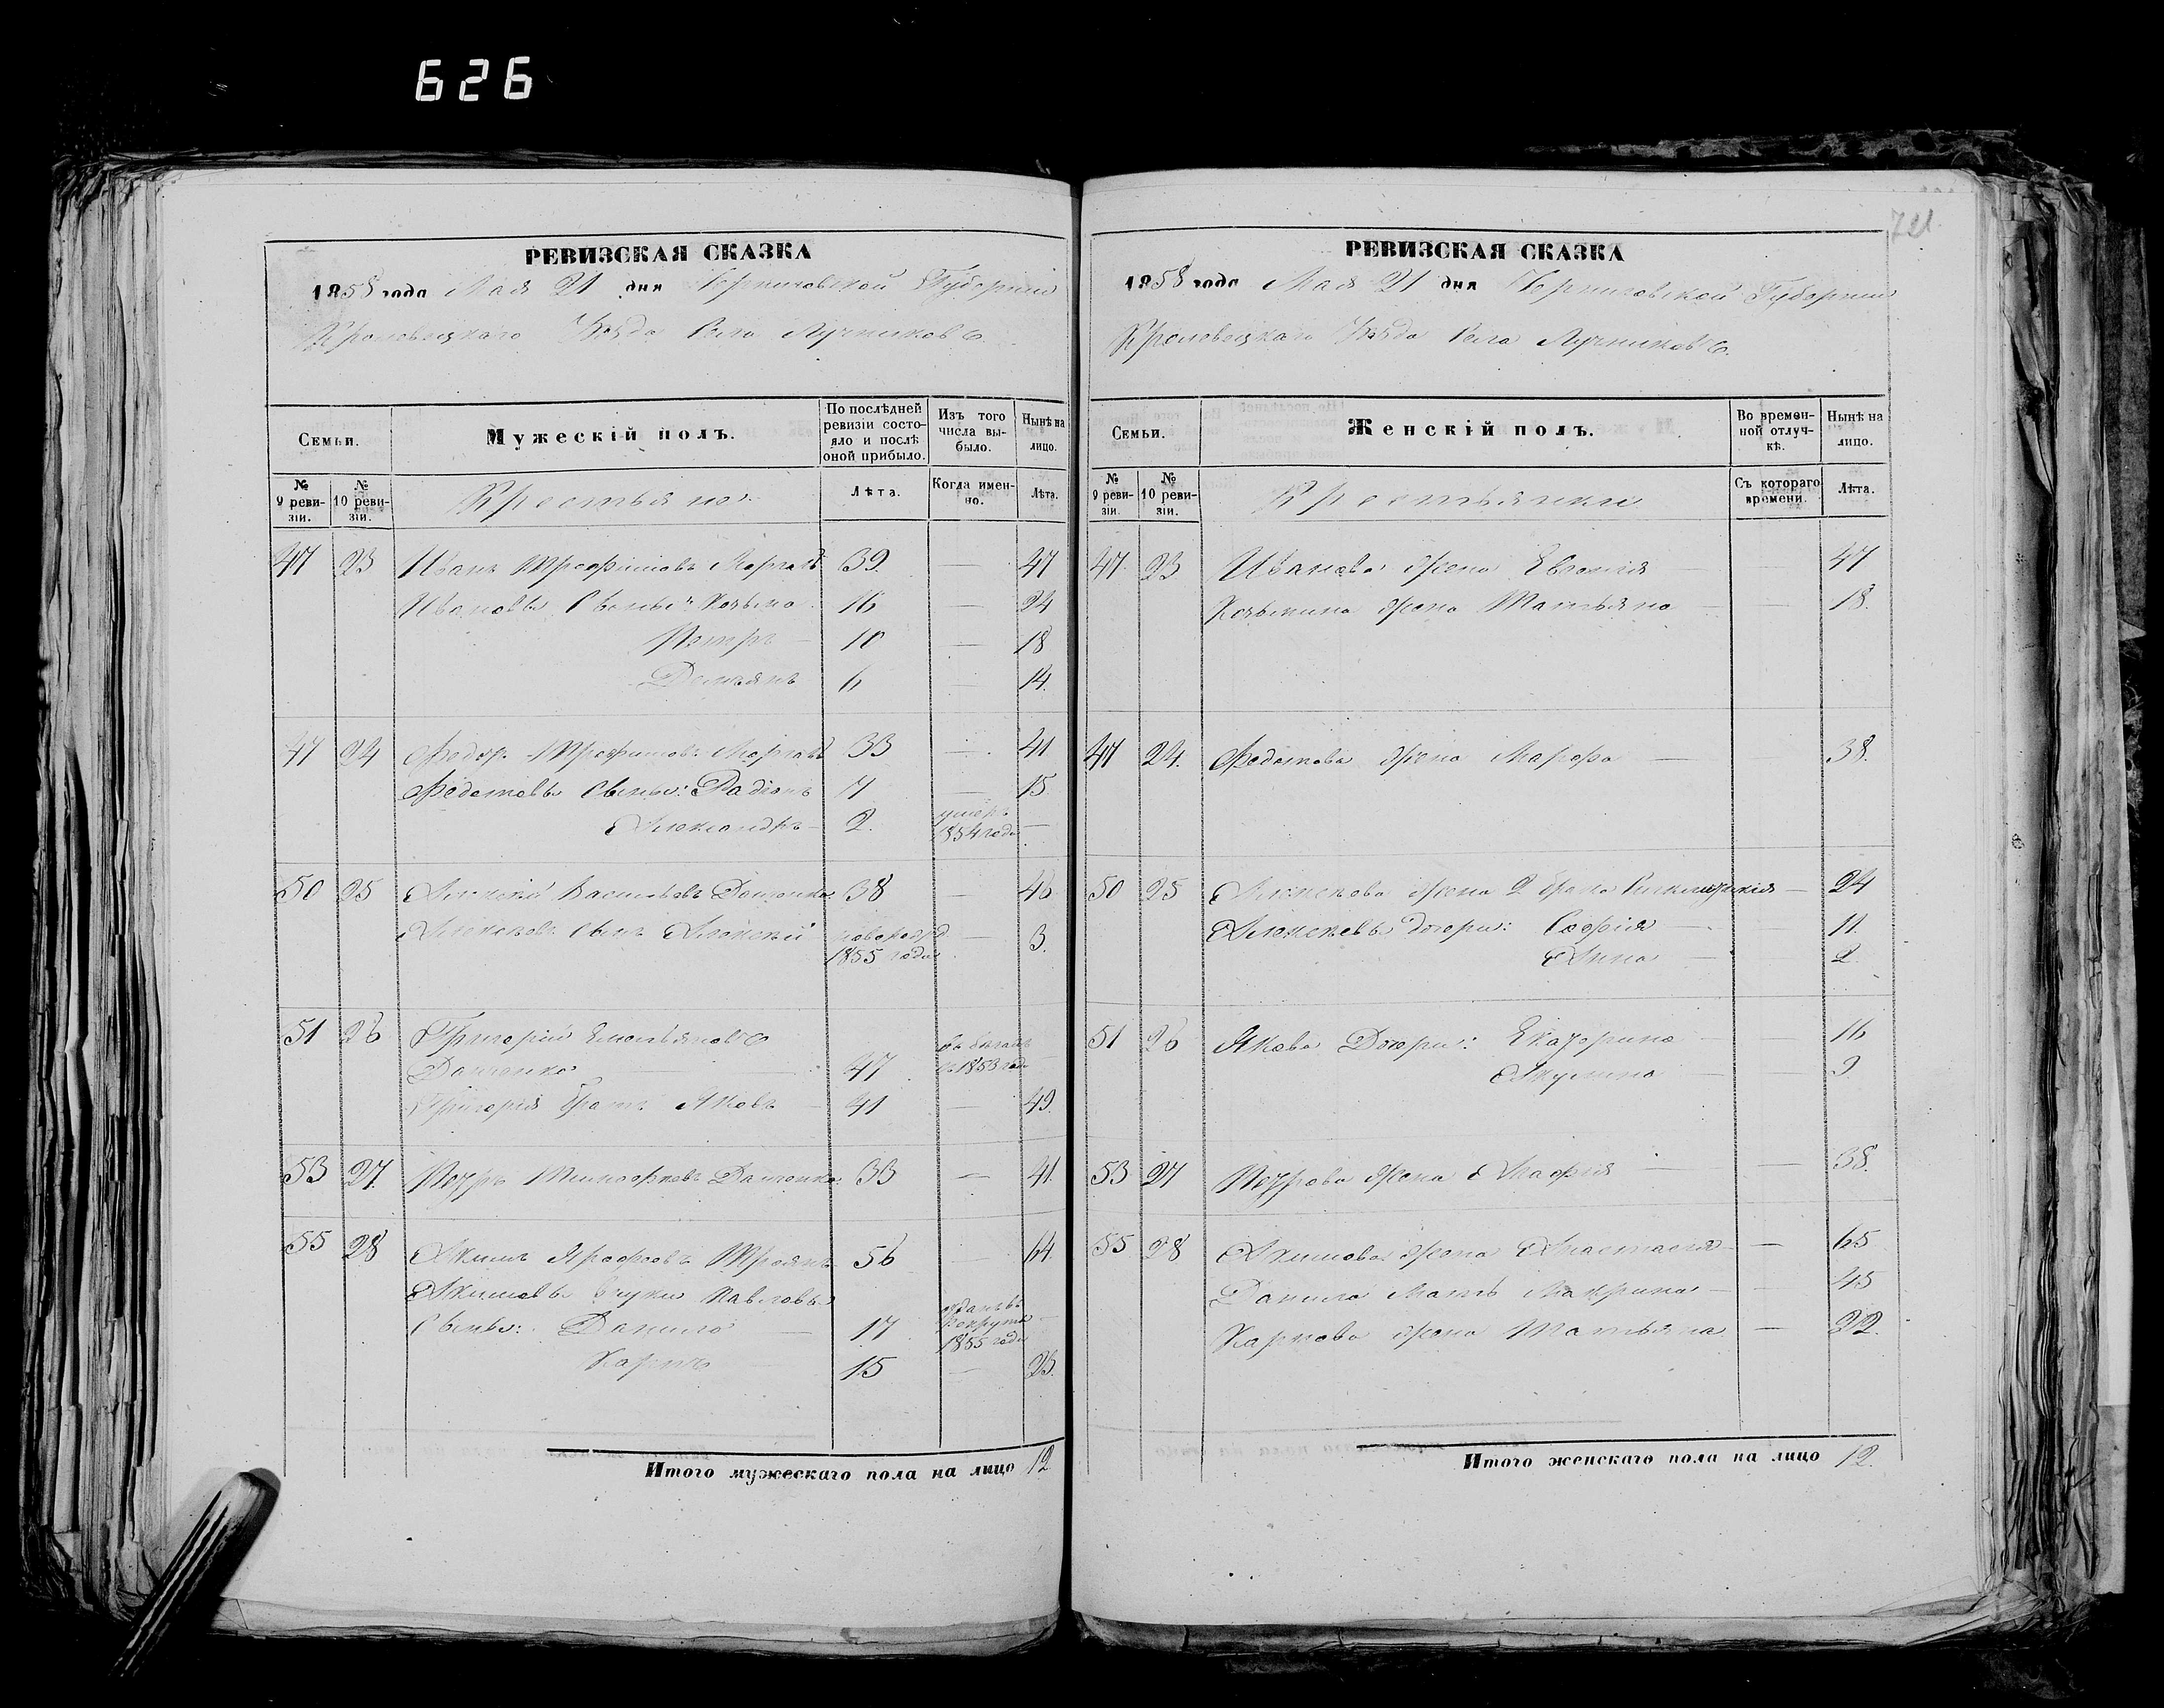 626
721
РЕВИЗСКАЯ СКАЗКА
1858 года Мая 21 дня Черниговской Губернии
Кролевецкаго Уѣзда Села Лучниковъ
Семьи.
Мужескій полъ.
По послѣдней ревизіи состояло и послѣ оной прибыло.
Изъ того числа выбыло.
Нынѣ на лицо.
№ 9 ревизіи.
№ 10 ревизіи.
Крестьяне
Лѣта.
Когда именно.
Лѣта.
47 23 Иванъ Трофимовъ 39. — 47
Ивановы Сыновья: Козьма 16 — 24
Петръ — 10 — 18
Демьянъ 6 — 14.
47 24 Трофимовъ 33 — 41
Федотовы Сыновья: Радіонъ 7 — 15.
Александръ — 2. умеръ 1854 года —
50 25 Алексѣй Васильевъ Даценко 38 — 46
Алексѣевъ Сынъ Алексѣй новорожд. 1855 года — 3.
51 26 Григорій Емельяновъ
Даценко 47 въ бѣгахъ съ 1853 года —
Григорія братъ Яковъ — 41 — 49.
53 27. Петръ Тимофѣевъ Даценко 33 — 41.
55 28 Акимъ Ярофѣевъ Троянъ 56 — 64.
Акимовы внуки Павловы
Сыновья: Данило — 17 отданъ въ рекруты 1855 года —
Карпъ 15 — 23.
Итого мужескаго пола на лицо 12
РЕВИЗСКАЯ СКАЗКА
1858 года Мая 21 дня Черниговской Губернии
Кролевецкаго Уѣзда Села Лучниковъ.
Семьи.
Женскій полъ.
Во временной отлучкѣ.
Нынѣ на лицо.
№ 9 ревизіи.
№ 10 ревизіи.
Крестьянки
Съ котораго времени.
Лѣта.
47 23 Иванова жена Евгенія — — 47
Козьмина жена Татьяна — — 18.
47 24. Федотова жена Марфа — 38.
50 25 Алексѣева жена 2 брака — 24
Алексѣевы дочери: Софія — 11.
Анна — 2
51 26 Якова Дочери: Екатерина — 16
Акулина — 9
53 27 Петрова жена Агафія — — 38.
55 28 Акимова жена Анастасія — — 65
Данила Мать Макрина — — 45
Карпова жена Татьяна — 22.
Итого женскаго пола на лицо 12.